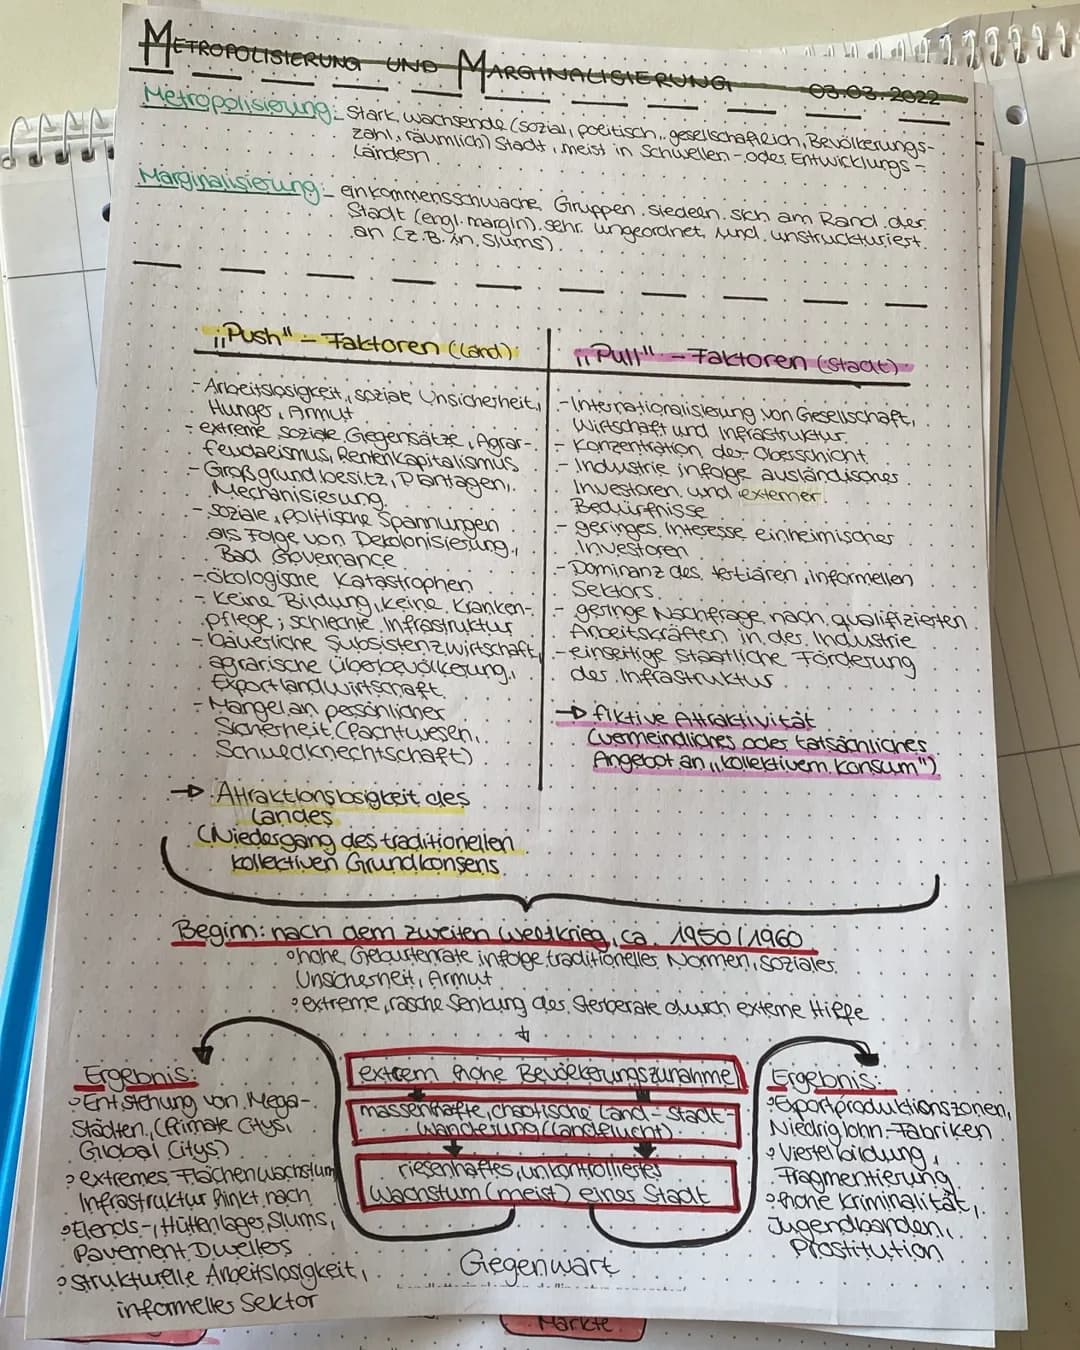 METROPOLISIERUNG UND MARGINALISIERUNG 03.03.2022
Metropolisierung: stark wachsende (sozial, politisch, gesellschaftlich, Bevölkerungs-
zahl, räumlich) Stadt, meist in Schwellen- oder Entwicklungs-
ländern
Marginalisierung: einkommensschwache Gruppen siedeln sich am Rand der
Stadt (engl. margin) sehr ungeordnet und unstruckturiert
an (z.B. in Slums)
„Push" - Faktoren (Land)
- Arbeitslosigkeit, soziale Unsicherheit,
Hunger, Armut
- extreme soziale Gegensätze, Agrar-
feudalismus, Rentenkapitalismus
- Großgrundbesitz, Plantagen,
Mechanisierung
- soziale, politische Spannungen
als Folge von Dekolonisierung,
Bad Governance
- ökologische Katastrophen
- keine Bildung, keine Kranken-
pflege, schlechte Infrastruktur
- bäuerliche Subsistenzwirtschaft,
agrarische Überbevölkerung,
Exportlandwirtschaft
- Mangel an persönlicher
Sicherheit (Pachtwesen,
Schuldknechtschaft)
→ Attraktionslosigkeit des
Landes
(Niedergang des traditionellen
kollektiven Grundkonsens
„Pull" - Faktoren (Stadt)
- Internationalisierung von Gesellschaft,
Wirtschaft und Infrastruktur
- Konzentration der Oberschicht
- Industrie infolge ausländischer
Investoren und externer
Bedürfnisse
- geringes Interesse einheimischer
Investoren
- Dominanz des tertiären, informellen
Sektors
- geringe Nachfrage nach qualifizierten
Arbeitskräften in der Industrie
- einseitige staatliche Förderung
der Infrastruktur
→ fiktive Attraktivität
(vermeindliches oder tatsächliches
Angebot an „kollektivem Konsum")
Beginn: nach dem zweiten Weltkrieg, ca. 1950/1960
° hohe Geburtenrate infolge traditioneller Normen, sozialer
Unsicherheit, Armut
° extreme, rasche Senkung der Sterberate durch externe Hilfe
↓
extrem hohe Bevölkerungszunahme
massenhafte, chaotische Land-Stadt-
Wanderung (Landflucht)
riesenhaftes, unkontrolliertes
Wachstum (meist) einer Stadt
Gegenwart
Ergebnis:
° Entstehung von Mega-
Städten, (Primate Citys,
Global Citys)
° extremes Flächenwachstum
Infrastruktur hinkt nach
° Elends-, Hüttenlager, Slums,
Pavement Dweller
° strukturelle Arbeitslosigkeit,
informeller Sektor
Ergebnis:
° Exportproduktionszonen,
Niedriglohn-Fabriken
° Viertelbildung,
Fragmentierung
° hohe Kriminalität,
Jugendbanden,
Prostitution
Märkte